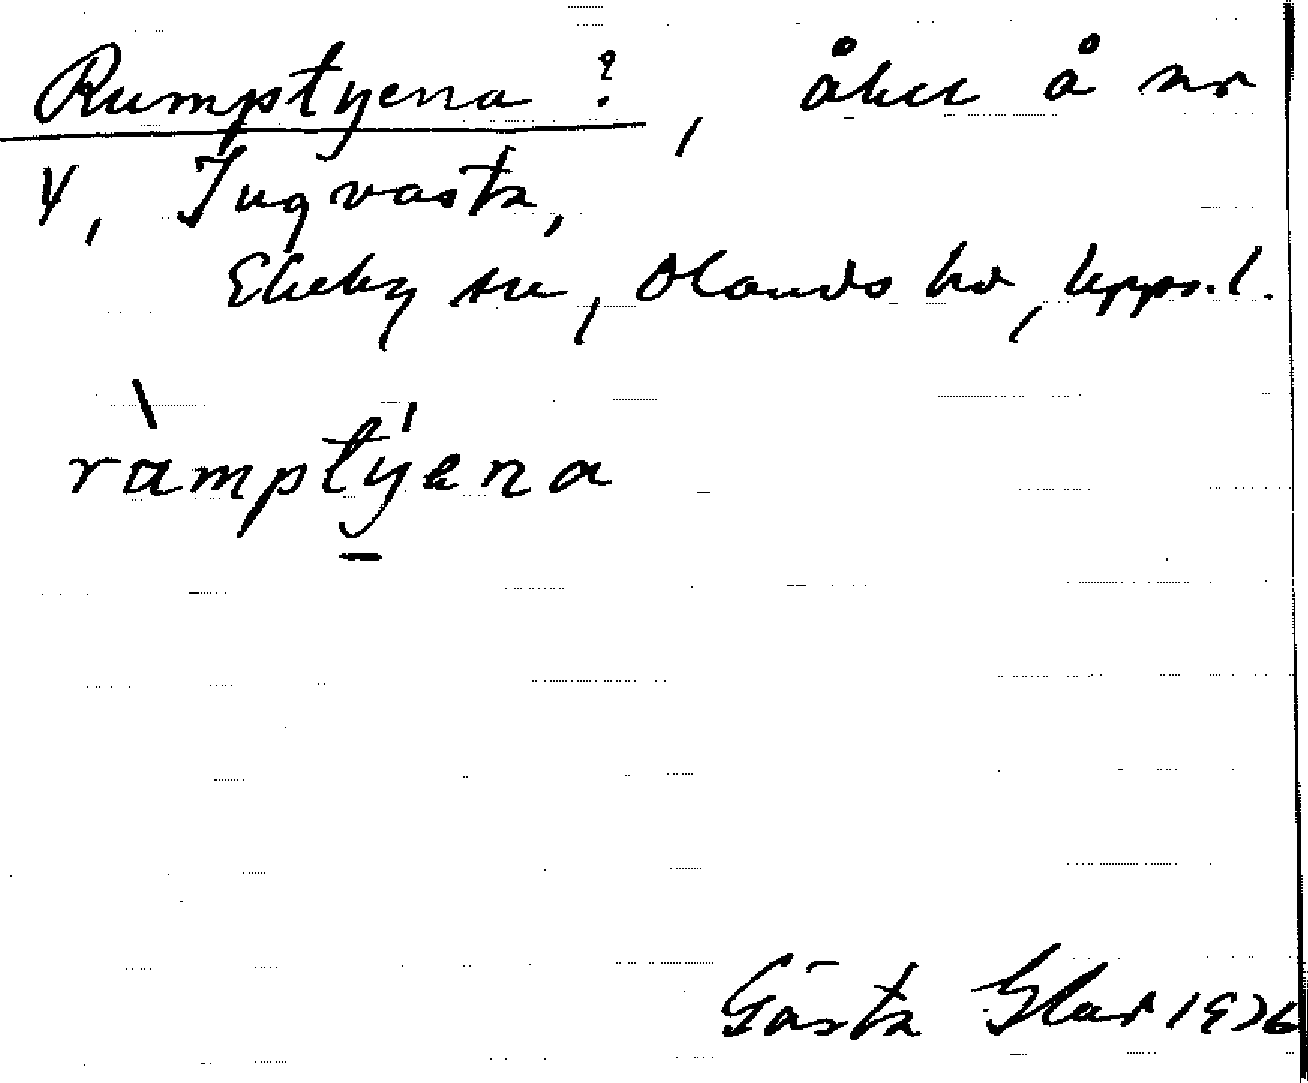 Rumptyena ?, åker å nr
4, Ingvasta,
Ekeby sn, Olands hd, Upps. l.
rùmptýena
Gösta Glad 1926